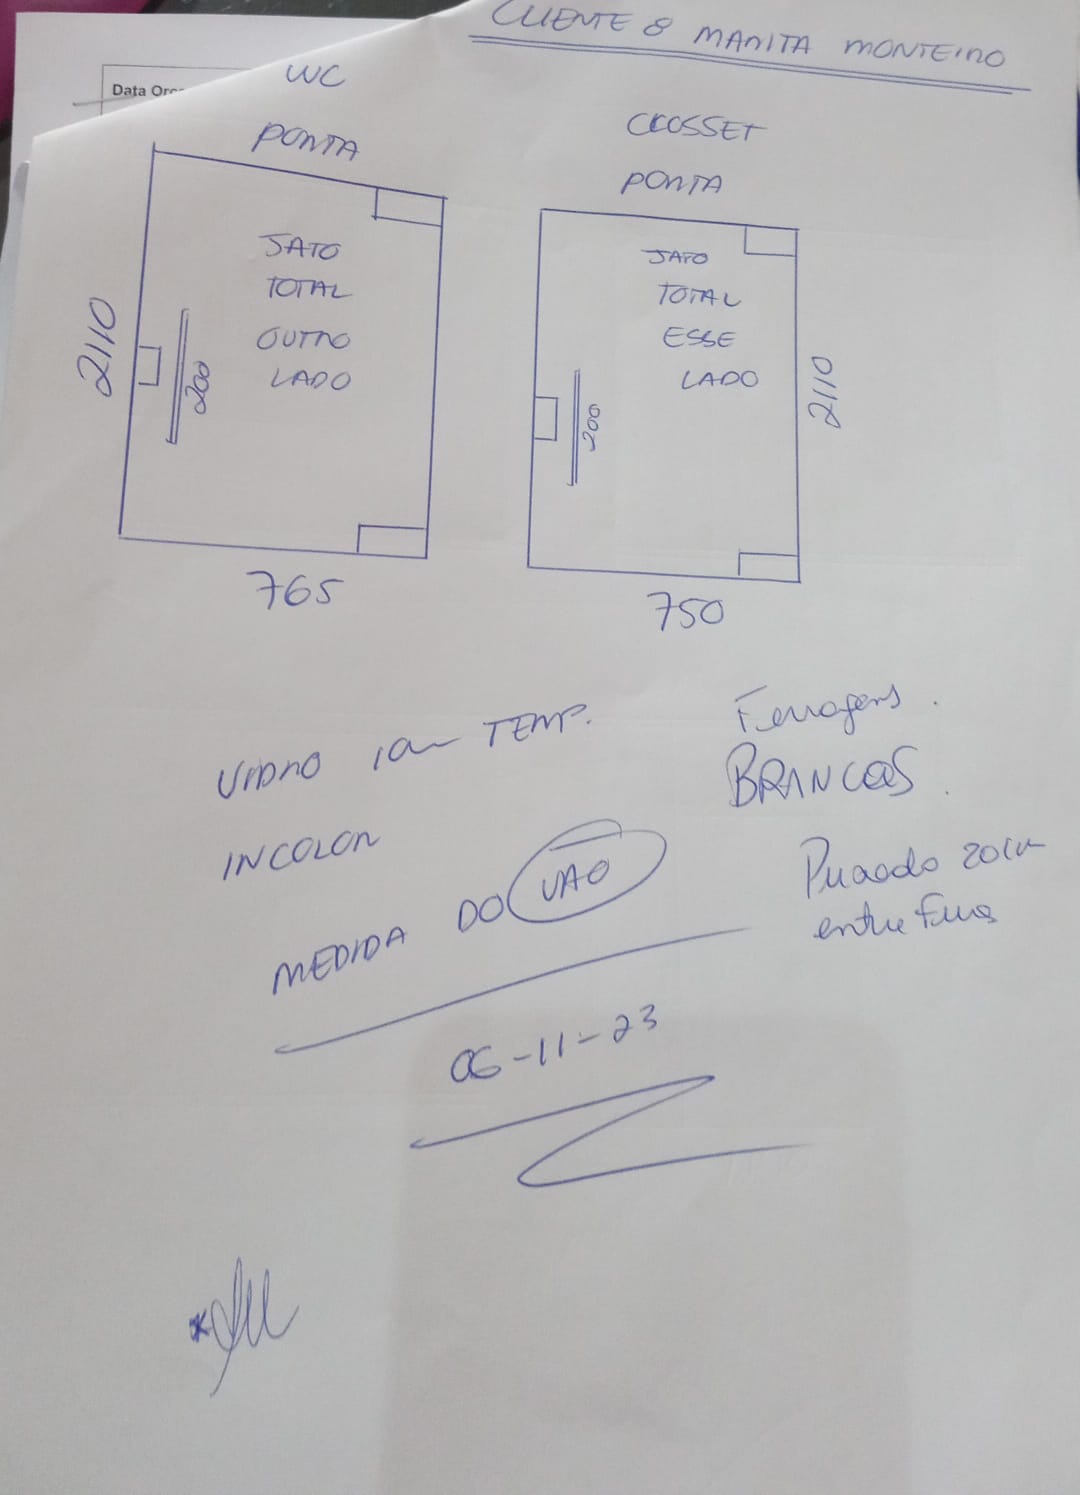 CLIENTE 8 MARITA MONTEIRO
Data Orç
WC
PORTA
JATO
TOTAL
OUTRO
LADO
2110
200
765
CLOSSET
PORTA
JATO
TOTAL
ESSE
LADO
200
2110
750
VIDRO TEMP.
INCOLOR
MEDIDA DO VÃO
Ferragens.
BRANCAS.
Puxado 20cm
entre furos
06-11-23